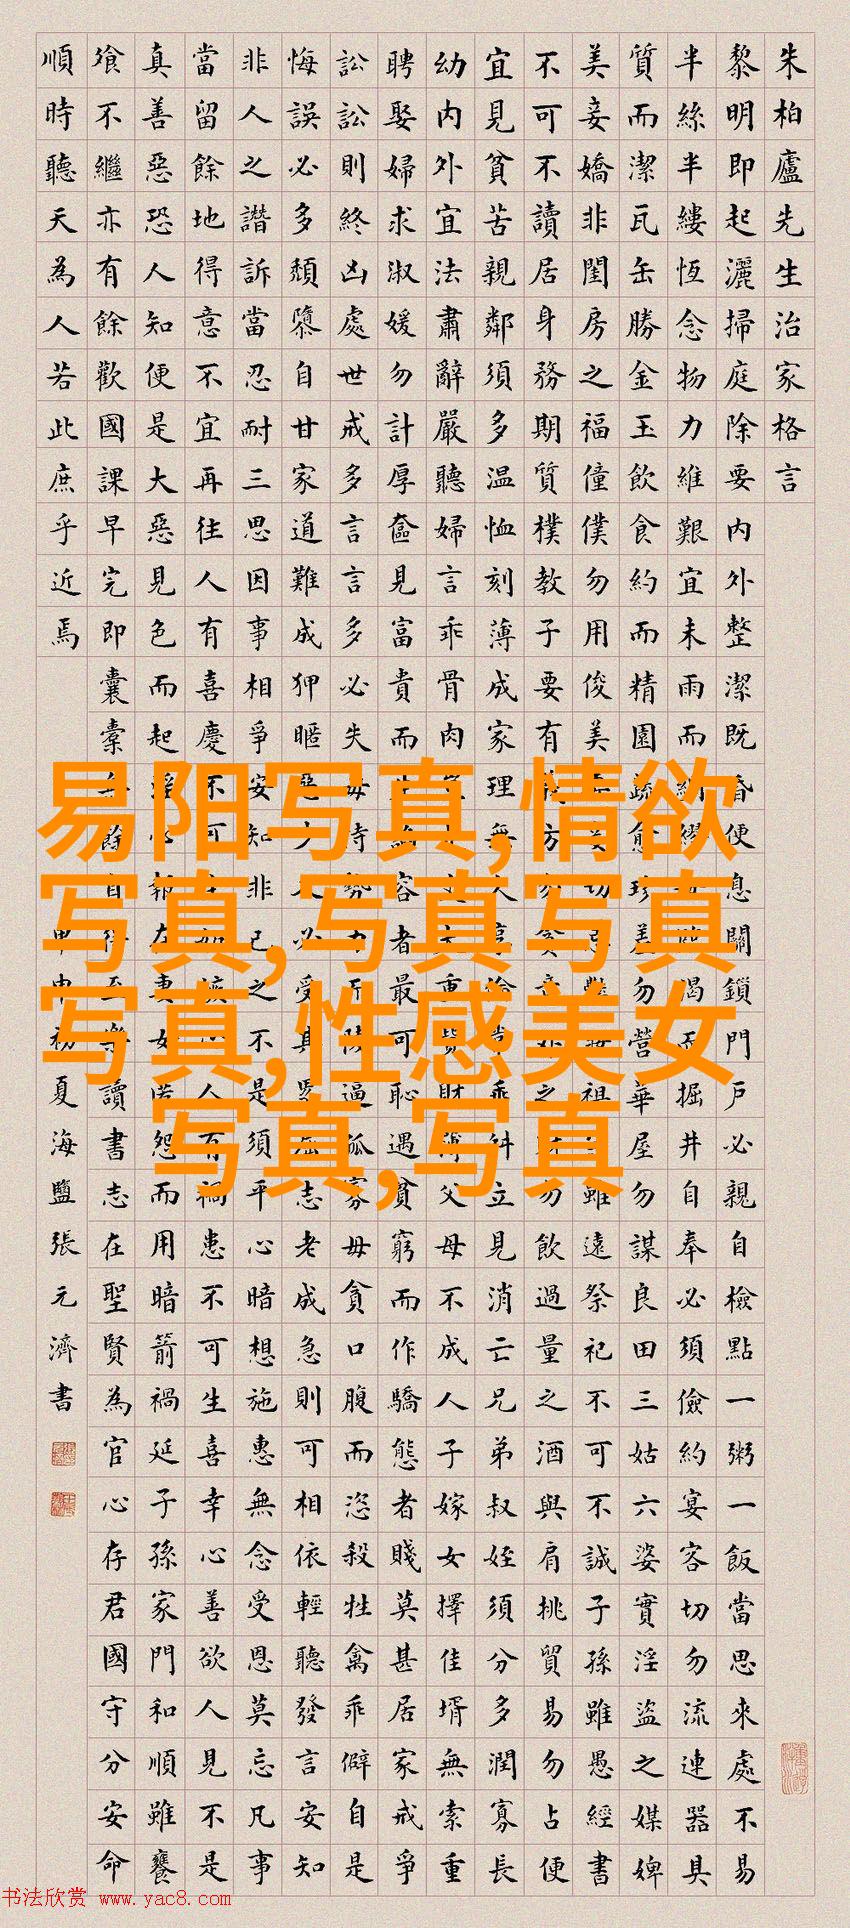 朱柏廬先生治家格言
黎明即起灑掃庭除要內外整潔既昏便息關鎖門戶必親自檢點一粥一飯當思來處不易
半絲半縷恆念物力維艱宜未雨而綢繆渴而掘井自奉必須儉約宴客切勿流連器具
質而潔瓦缶勝金玉飲食約而精園蔬愈珍羞勿營華屋勿謀良田三姑六婆實淫盜之媒婢
美妾嬌非閨房之福僮僕勿用俊美切忌艷妝祖雖遠祭祀不可不誠子孫雖愚經書
不可不讀居身務期質樸教子要有方勿貪意外之財勿飲過量之酒與肩挑貿易勿占便
宜見貧苦親鄰須多温恤刻薄成家理無久享倫常乖舛立見消亡兄弟叔姪須分多潤寡長
幼內外宜法肅辭嚴聽婦言乖骨肉丈夫重貲財薄父母不成人子嫁女擇佳壻無索重
聘娶婦求淑媛勿計厚奩見富貴而生容者最可恥遇貧窮而作驕態者賤莫甚居家戒爭
訟訟則終凶處世戒多言言多必失毋恃勢力而陵逼孤寡毋貪口腹而恣殺牲禽乖僻自是
悔誤必多頹隳自甘家道難成狎暱惡少久必受其累屈志老成急則可相依輕聽發言安知
非人之譖訴當忍耐三思因事相爭安知非己之不是須平心暗想施惠無念受恩莫忘凡事
當留餘地得意不宜再往人有喜慶不可生妒嫉心人有禍患不可生喜幸心善欲人見不是
真善惡恐人知便是大惡見色而起淫心報在妻女匿怨而用暗箭禍延子孫家門和順雖饔
飧不繼亦有餘歡國課早完即囊橐無餘自得至樂讀書志在聖賢為官心存君國守分安命
順時聽天為人若此庶乎近焉
甲申初夏海鹽張元濟書
易阳写真,情欲
写真,写真写真
写真,性感美女
写真,写真
书法欣赏 www.yac8.com